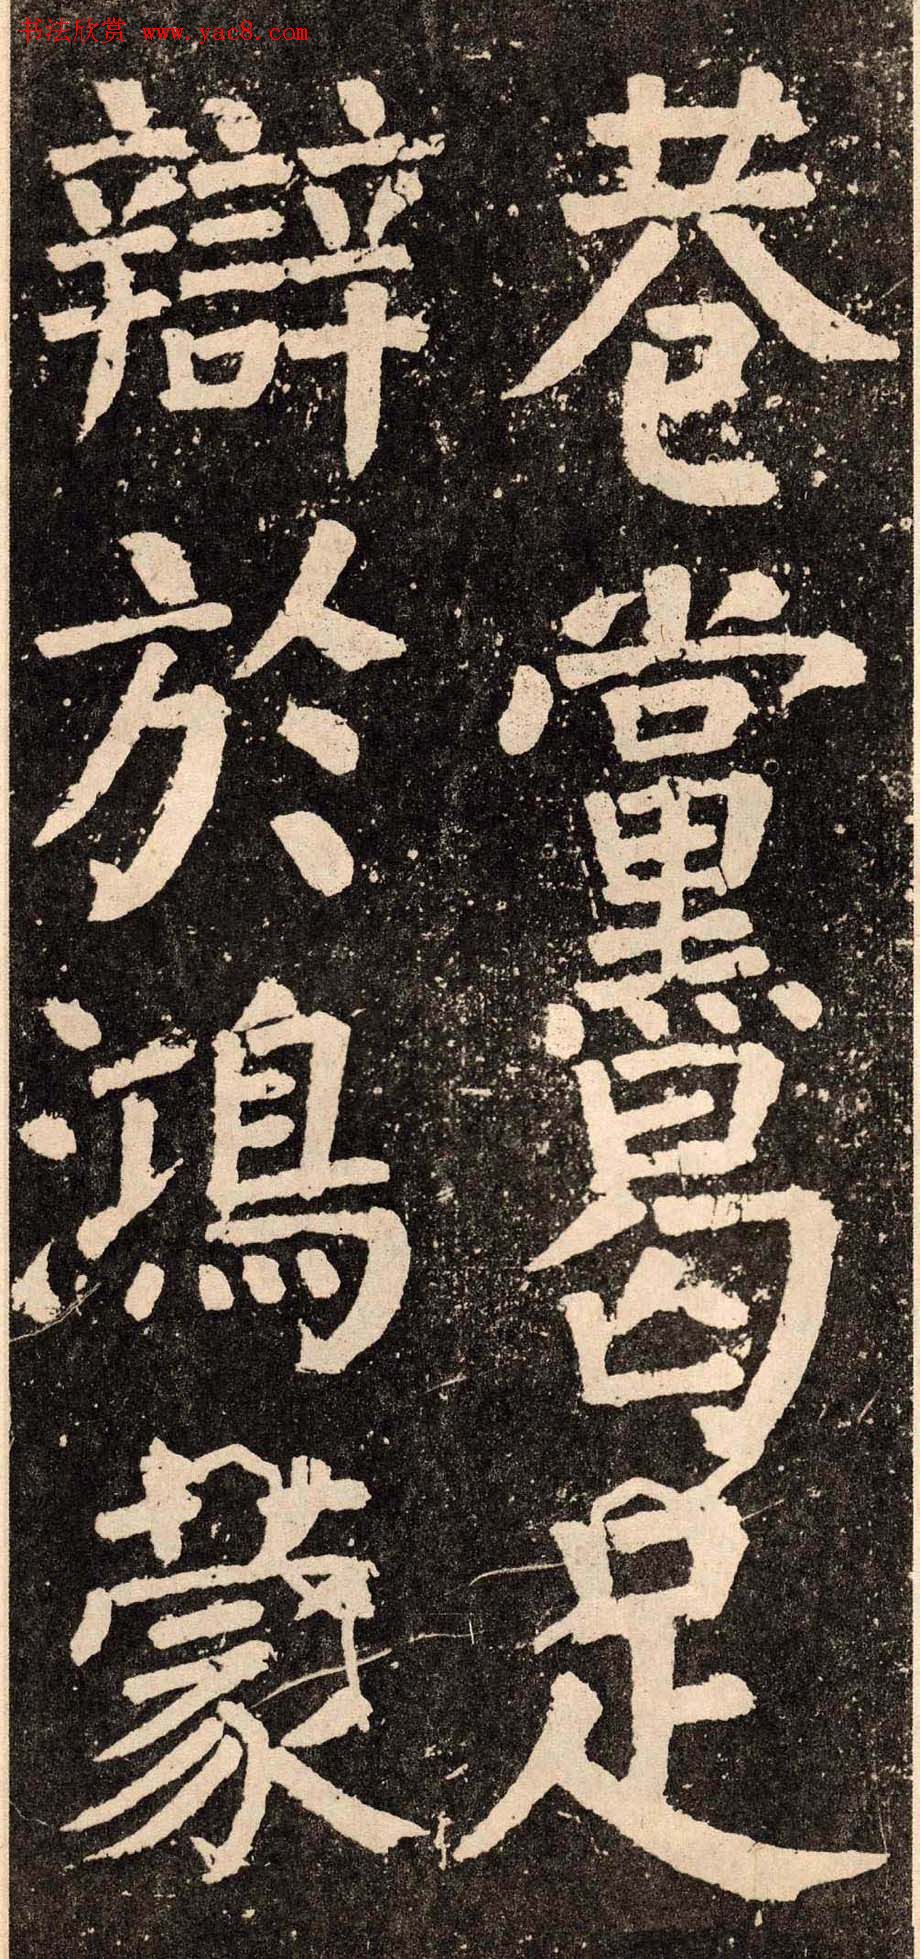 书法欣赏 www.yac8.com
巷黨曷足
辯於鴻蒙